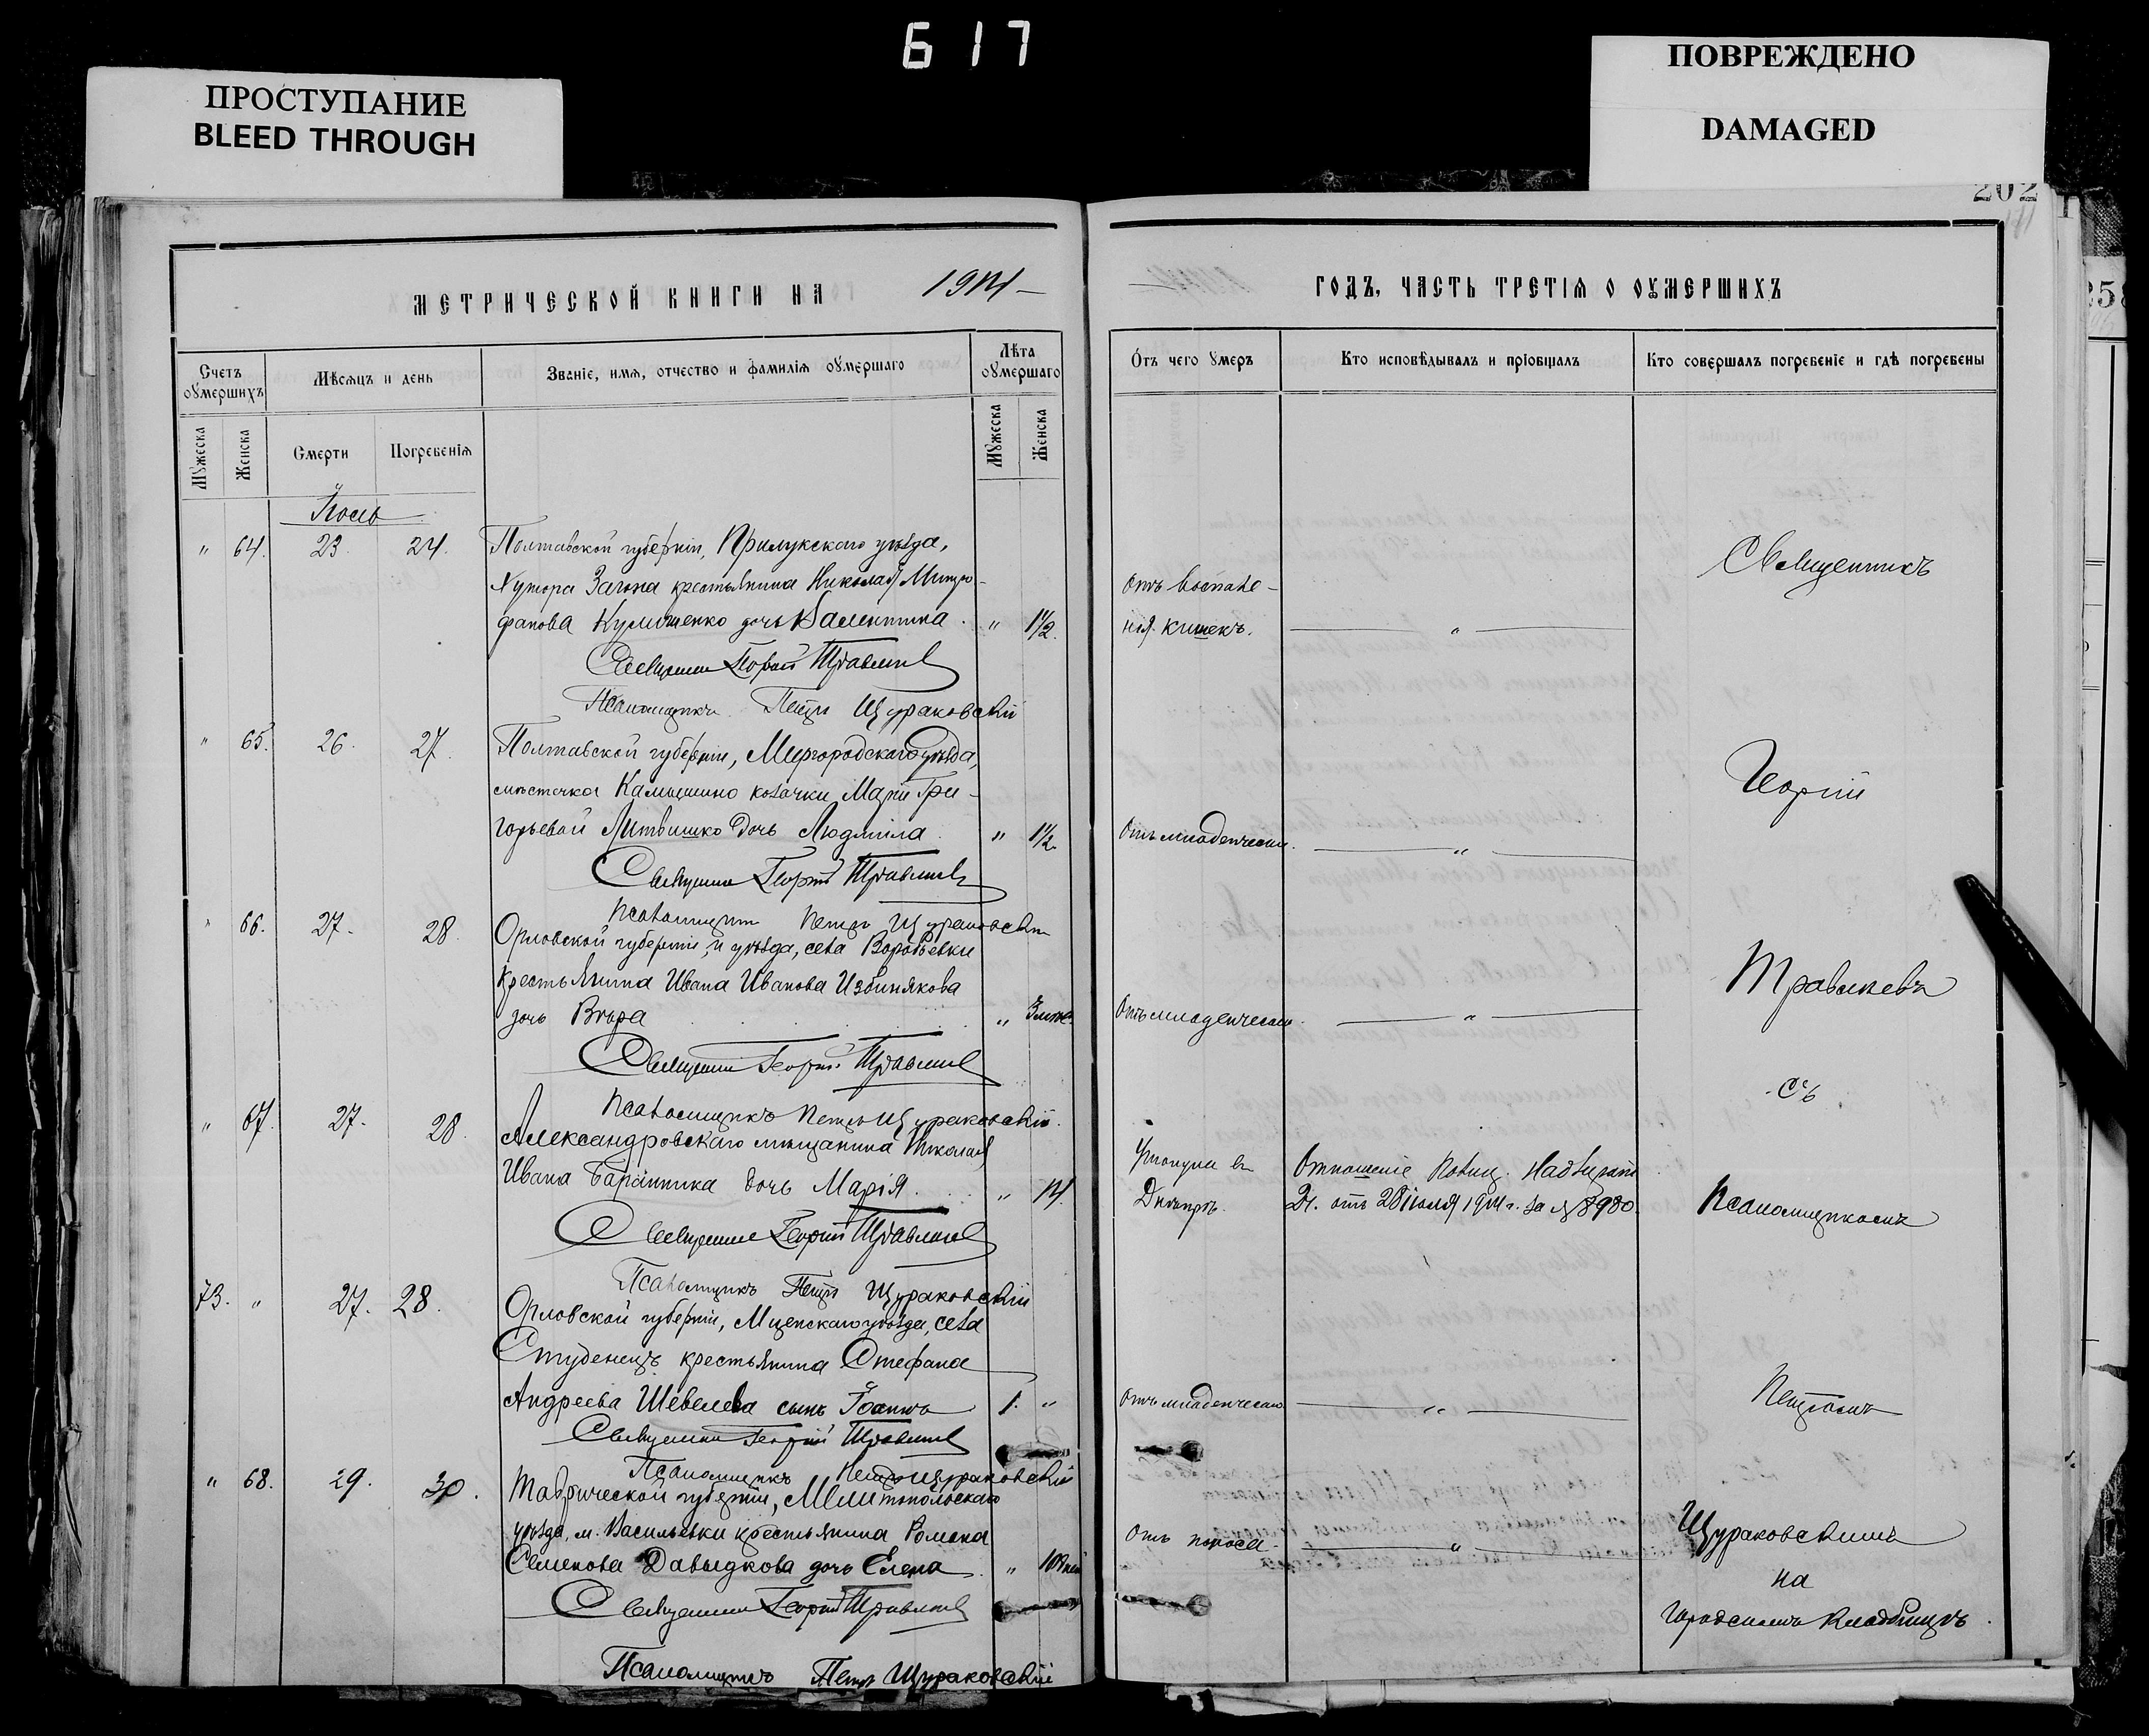 617
ПРОСТУПАНИЕ
BLEED THROUGH
ПОВРЕЖДЕНО
DAMAGED
202
258
МЕТРИЧЕСКОЙ КНИГИ НА 1914
ГОДЪ, ЧАСТЬ ТРЕТІЯ О ОУМЕРШИХЪ
Счетъ оумершихъ
Мѣсяцъ и день
Званіе, имя, отчество и фамилія оумершаго
Лѣта оумершаго
Отъ чего умеръ
Кто исповѣдывалъ и пріобщалъ
Кто совершалъ погребеніе и гдѣ погребены
Мужеска
Женска
Смерти
Погребенія
Мужеска
Женска
Іюль
" 64. 23. 24. Полтавской губерніи, Прилукскаго уѣзда,
Хутора Загона крестьянина Николая Митро-
фанова Кулишенко дочь Валентина . " 1½.
Отъ воспале-
нія кишекъ. "
Священникъ Георгій Травлевъ
Псаломщикъ Петръ Щураковскій
" 65. 26. 27. Полтавской губерніи, Миргородскаго уѣзда,
мѣстечка Камышино козачки Маріи Гри-
горьевой Литвишко дочь Людмила . " 1½.
Отъ младенческ. "
Священникъ Георгій Травлевъ
Псаломщикъ Петръ Щураковскій
" 66. 27. 28. Орловской губерніи, и уѣзда, села Воробьевки
крестьянина Ивана Иванова Избинякова
дочь Вѣра " 3 мѣс.
Отъ младенческ. "
Священникъ Георгій Травлевъ
Псаломщикъ Петръ Щураковскій
" 67. 27. 28. Александровскаго мѣщанина Николая
Ивана Баранника дочь Марія . " 14.
Утонула въ
Днѣпрѣ.
Отношеніе Полиц. Надзират.
2ч. отъ 28 іюля 1914 г. за № 8980.
Священникъ Георгій Травлевъ
Псаломщикъ Петръ Щураковскій
73. " 27. 28. Орловской губерніи, Мценскаго уѣзда, села
Студенецъ крестьянина Стефана
Андреева Шевелева сынъ Іоаннъ 1. "
Отъ младенческ. "
Священникъ Георгій Травлевъ
Псаломщикъ Петръ Щураковскій
" 68. 29. 30. Таврической губерніи, Мелитопольскаго
уѣзда, м. Васильевки крестьянина Романа
Семенова Давыдкова дочь Елена . " 10 дней
Отъ поноса. "
Священникъ Георгій Травлевъ
Псаломщикъ Петръ Щураковскій
Священникъ
Георгій
Травлевъ
съ
Псаломщикомъ
Петромъ
Щураковскимъ
на
городскомъ кладбищѣ.